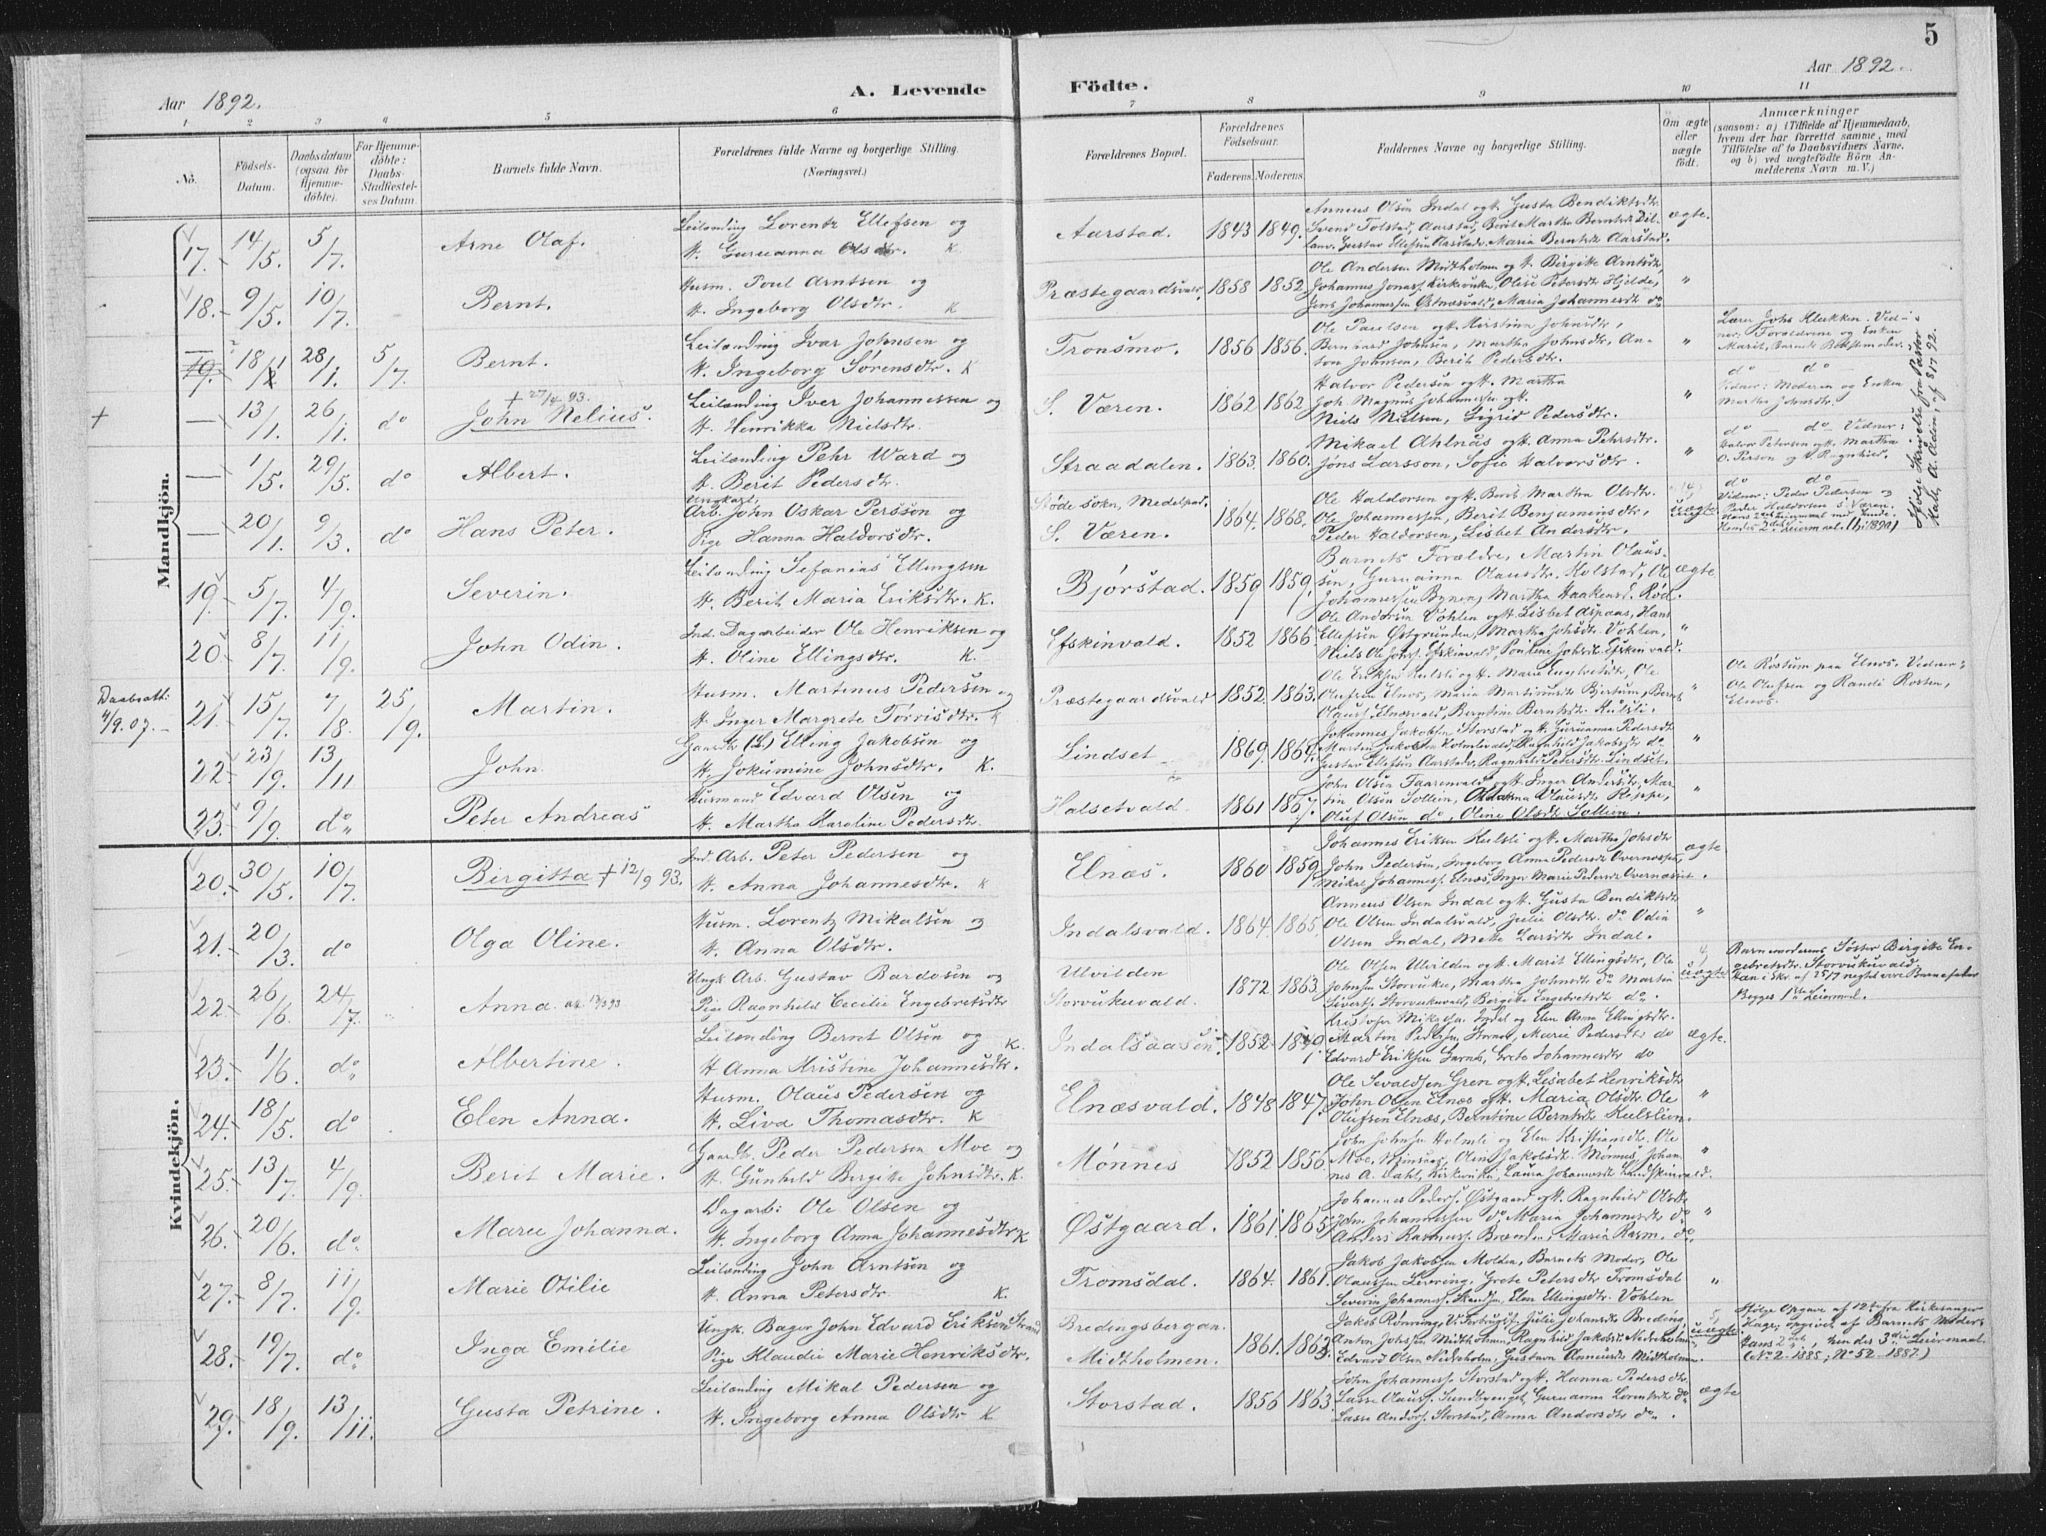 5
Aar 1892.
A. Levende Födte.
Aar 1892.
1 2 3 4 5 6 7 8 9 10 11
No.
Födsels-Datum.
Daabsdatum (ogsaa for Hjemme-döbte).
For Hjemme-döbte: Daabs-Stadfæstel-ses Datum.
Barnets fulde Navn.
Forældrenes fulde Navne og borgerlige Stilling. (Næringsvei.)
Forældrenes Bopæl.
Forældrenes Födselsaar.
Faderens. Moderens.
Faddernes Navne og borgerlige Stilling.
Om ægte eller uægte födt.
Anmærkninger (saasom: a) i Tilfælde af Hjemmedaab, hvem der har forrettet samme, med Tilföielse af to Daabsvidners Navne, og b) ved uægtefödte Börn An-melderens Navn m. V.)
Mandkjön.
17. 14/5. 5/7. Arne Olaf.
Leilænding Lorentz Ellefsen og
H. Guruanna Olsdtr. K
Aarstad. 1843 1849.
Anneus Olsen Indal og H. Gusta Bendiktsdtr
Svend Tolstad, Aarstad, Berit Martha Berntsdtr
Gustav Ellefsen Aarstad, Maria Berntsdtr Aarstad.
ægte.
18. 9/5. 10/7. Bernt.
Husm. Poul Arntsen og
H. Ingeborg Olsdtr. K
Præstegaardsvald, 1858 1852
Ole Andersen Midtholmen og H. Birgitte Arntsdtr,
Johannes Jonas. Kirkevuku, Olise Petersdtr Hjelde,
Jens Johannessen Østnæsvald, Maria Johannesdtr do
"
19. 18/1 28/1. 5/7. Bernt.
Leilænding Ivar Johnsen og
H. Ingeborg Sörensdtr. K
Tronsmo. 1856 1856.
Ole Paulsen og H. Kirstina Johnsdtr,
Bernhard Johnsen, Martha Johnsdtr, An-
ton Johnsen, Berit Pedersdtr.
"
Lærer Johs Klukken. Vid-
ner, Forældrene og Enken
Marit, Barnets Bedstemoder.
+ — 13/1. 26/1. do John Nelius. + 27/4 93.
Leilænding Iver Johannessen og
H. Henrikka Nielsdtr.
S. Væren. 1862 1862
Halvor Pedersen og H. Martha
Joh. Magnus Johannessen og H.
Niels Nielsen, Sigrid Pedersdtr.
"
do do
Vidner: Moderen og Enken
Martha Johnsdtr.
— 1/5. 29/5. do Albert.
Leilænding Pehr Ward og
H. Berit Pedersdtr.
Straadalen. 1863. 1860.
Mikael Ahlnäs og H. Anna Pehrsdtr.
Jöns Larsson, Sofie Halvorsdtr.
"
do — do — Vidner:
Halvor Petersen og H. Martha
O. Person og H. Ragnhild.
— 20/1. 9/3. do Hans Peter.
Ungkarl,
Arb. John Oskar Persson og
Pige Hanna Haldorsdtr.
Stöde sokn, Medelpad.
S. Væren. 1864. 1868.
Ole Haldorsen og H. Berit Martha Olsdtr.
Ole Johannessen, Berit Benjaminsdtr,
Peder Haldorsen, Lisbet Andersdtr.
uægte
do do
Vidner: Peder Pedersen og
Peder Haldorsen S. Væren.
Ifølge Skrivelse fra Pastor
Kall, A. Edin, af 8/7 92.
19. 5/7. 4/9. Severin.
Leilænding Sefanias Ellingsen
H. Berit Maria Eriksdtr. K.
Bjørstad. 1859 1859.
Barnets Forældre, Martin Olaus-
sen, Guruanna Olausdtr. Holstad, Ole
Johannessen Bynen, Martha Haakensdtr. Röd.
ægte
20 8/7. 11/9. John Odin.
Ind. Dagarbeider Ole Henriksen og
H. Oline Ellingsdtr. K.
Efskinvald. 1852 1866.
Ole Andersen Vohlen og H. Lisbet Aspaas, Hans
Ellefsen Østgrunden, Martha Johsdtr. Vohlen,
Niels Ole Jons. Efskinvald, Pauline Johsdtr. Efskinvald.
"
Daabsatt. 4/9.07.—
21. 15/7. 7/18. 25/9. Martin.
Husm. Martinus Pedersen og
H. Inger Margrete Torrisdtr. K
Præstegaardsvald 1852. 1863.
Ole Eriksen Kulsli og H. Marie Engbretsdtr, Ole
Olufsen Elnes, Maria Martinusdtr Birtum, Bernt
Olauss. Elnæsvald, Berntine Berntsdtr. Kulsli.
"
Ole Rostum paa Elnes. Vidner:
Ole Olufsen og Randi Rosten,
Elnes.
22. 23/9. 13/11 John.
Gaardbr (S.) Elling Jakobsen og
H. Jokumine Johnsdtr. K.
Lindset 1869. 1864.
Johannes Jakobsen Storstad og H. Guruanna Pedersdtr
Martin Jakobsen Holmlivald, Ragnhild Jakobsdtr do
Gustav Ellefsen Aarstad, Ragnhild Pedersdtr. Lindset.
"
23. 9/9. do Peter Andreas
Husmand Edvard Olsen og
H. Martha Karoline Pedersdtr.
Halsetvald. 1861 1867.
John Olsen Faarenvald og H. Inger Andersdtr, Mar-
tin Olsen Sollien, Olausdtr Reppe,
Oluf Olsen do, Oline Olsdtr Sollien.
"
Kvindekjön.
20. 30/5. 10/7. Birgitta + 12/9 93.
Ind. Arb. Peter Pedersen og
H. Anna Johannesdtr. K
Elnæs. 1860 1859.
Johannes Eriksen Kulsli og H. Martha Johsdtr
John Pedersen, Ingeborg Anna Pedersdtr Overnæsset,
Mikal Johannes. Elnæs, Inger Marie Pedersdtr Overnæsset.
ægte
21. 20/3. do Olga Oline.
Husm. Lorentz Mikalsen og
H. Anna Olsdtr.
Indalsvald. 1864 1865
Anneus Olsen Indal og H. Gusta Bendiktsdtr
Ole Olsen Indalsvald, Julie Olsdtr. do Odin
Olsen Indal, Mette Larsdtr Indal.
"
22. 26/6. 24/7. Anna.
Ungk. Arb. Gustav Bardosen og
Pige Ragnhild Cecilie Engebretsdtr
Ulvilden
Storvukuvald. 1872 1863
Ole Olsen Ulvilden og H. Marit Ellingsdtr, Ole
Johnsen Storvuku, Martha Johnsdtr do Martin
Sivertsen Storvukuvald, Birgitte Engebretsdtr do.
uægte
Barnemoderens Söster Birgitte En-
gebretsdtr. Storvukuvald.
Han i Skr. af 25/7 negtet være Barnefader
Begges 1ste Leiermaal.
23. 1/6. do Albertine.
Leilænding Bernt Olsen og K.
H Anna Kristine Johannesdtr.
Indalsaasen. 1852 1849.
Kristofer Mikalsen Indal og Elen Anna Ellingsdtr.
Martin Pedersen Storner, Marie Pedersdtr do
Edvard Eriksen Garnes, Grete Johannesdtr do
ægte.
24. 18/5. do Elen Anna.
Husm. Olaus Pedersen og
H. Liva Thomasdtr. K
Elnæsvald. 1848 1847.
Ole Sevaldsen Gren og H. Lisabet Henriksdtr
John Olsen Elnæs og H. Maria Olsdtr. Ole
Olufsen Elnæs, Berntine Berntsdtr Kulslien.
"
25. 13/7. 4/9. Berit Marie.
Gaardb. Peder Pedersen Moe og
H. Gunhild Birgitte Johnsdtr. K.
Mønnes 1852 1856
John Johnsen Holmli og Elen Kristiansdtr. Ole
Moe, Olin Jakobsdtr. Monnes, Johan-
nes A. Dahl, Kirkevuku, Laura Johannesdtr Landfskinvald.
"
26. 20/6. do. Marie Johanna.
Dagarb: Ole Olsen og
H. Ingeborg Anna Johannesdtr K
Østgaard. 1861. 1865
Johannes Peders. Østgaard og H. Ragnhild Olsdtr
John Johannessen do, Maria Johannesdtr do
Anders Rasmuss. Brænden, Maria Rasm. do.
"
27. 8/7. 11/9. Marie Otilie
Leilænding John Arntsen og
H. Anna Petersdtr K.
Tromsdal. 1864. 1861.
Jakob Jakobsen Molden, Barnets Moder, Ole
Olaussen Leirøring, Grete Petersdtr Tromsdal
Severin Johanness. Elen Ellingsdtr. Vohlen
"
28. 19/7. do. Inga Emilie
Ungk. Bager John Edvard Eriksen Strand
Pige Klaudie Marie Henriksdtr.
Bredingsbergan.
Midtholmen. 1861. 1863.
Jakob Rönning, Julie Johansdtr Breding,
Anton Johsen Midtholmen, Ragnhild Jakobsdtr Nedreholmen
Edvard Olsen Nedreholm, Gustava Anneusdtr Midtholmen.
uægte
Ifølge Opgave af 12te fra Kirkesanger
Hage, opgivet af Barnets Moder.
Hans 2det, hendes 3die Leiermaal.
(No 2-1885; No 52-1887.)
29. 18/9. 13/11. Gusta Petrine.
Leilænding Mikal Pedersen og
H. Ingeborg Anna Olsdtr K
Storstad. 1856 1863.
John Johanness. Storstad og H. Hanna Pedersdtr.
Lasse Olauss. Sundbyenget, Guruanna Lorentsdtr do
Lasse Anders. Storstad, Anna Andersdtr do.
ægte